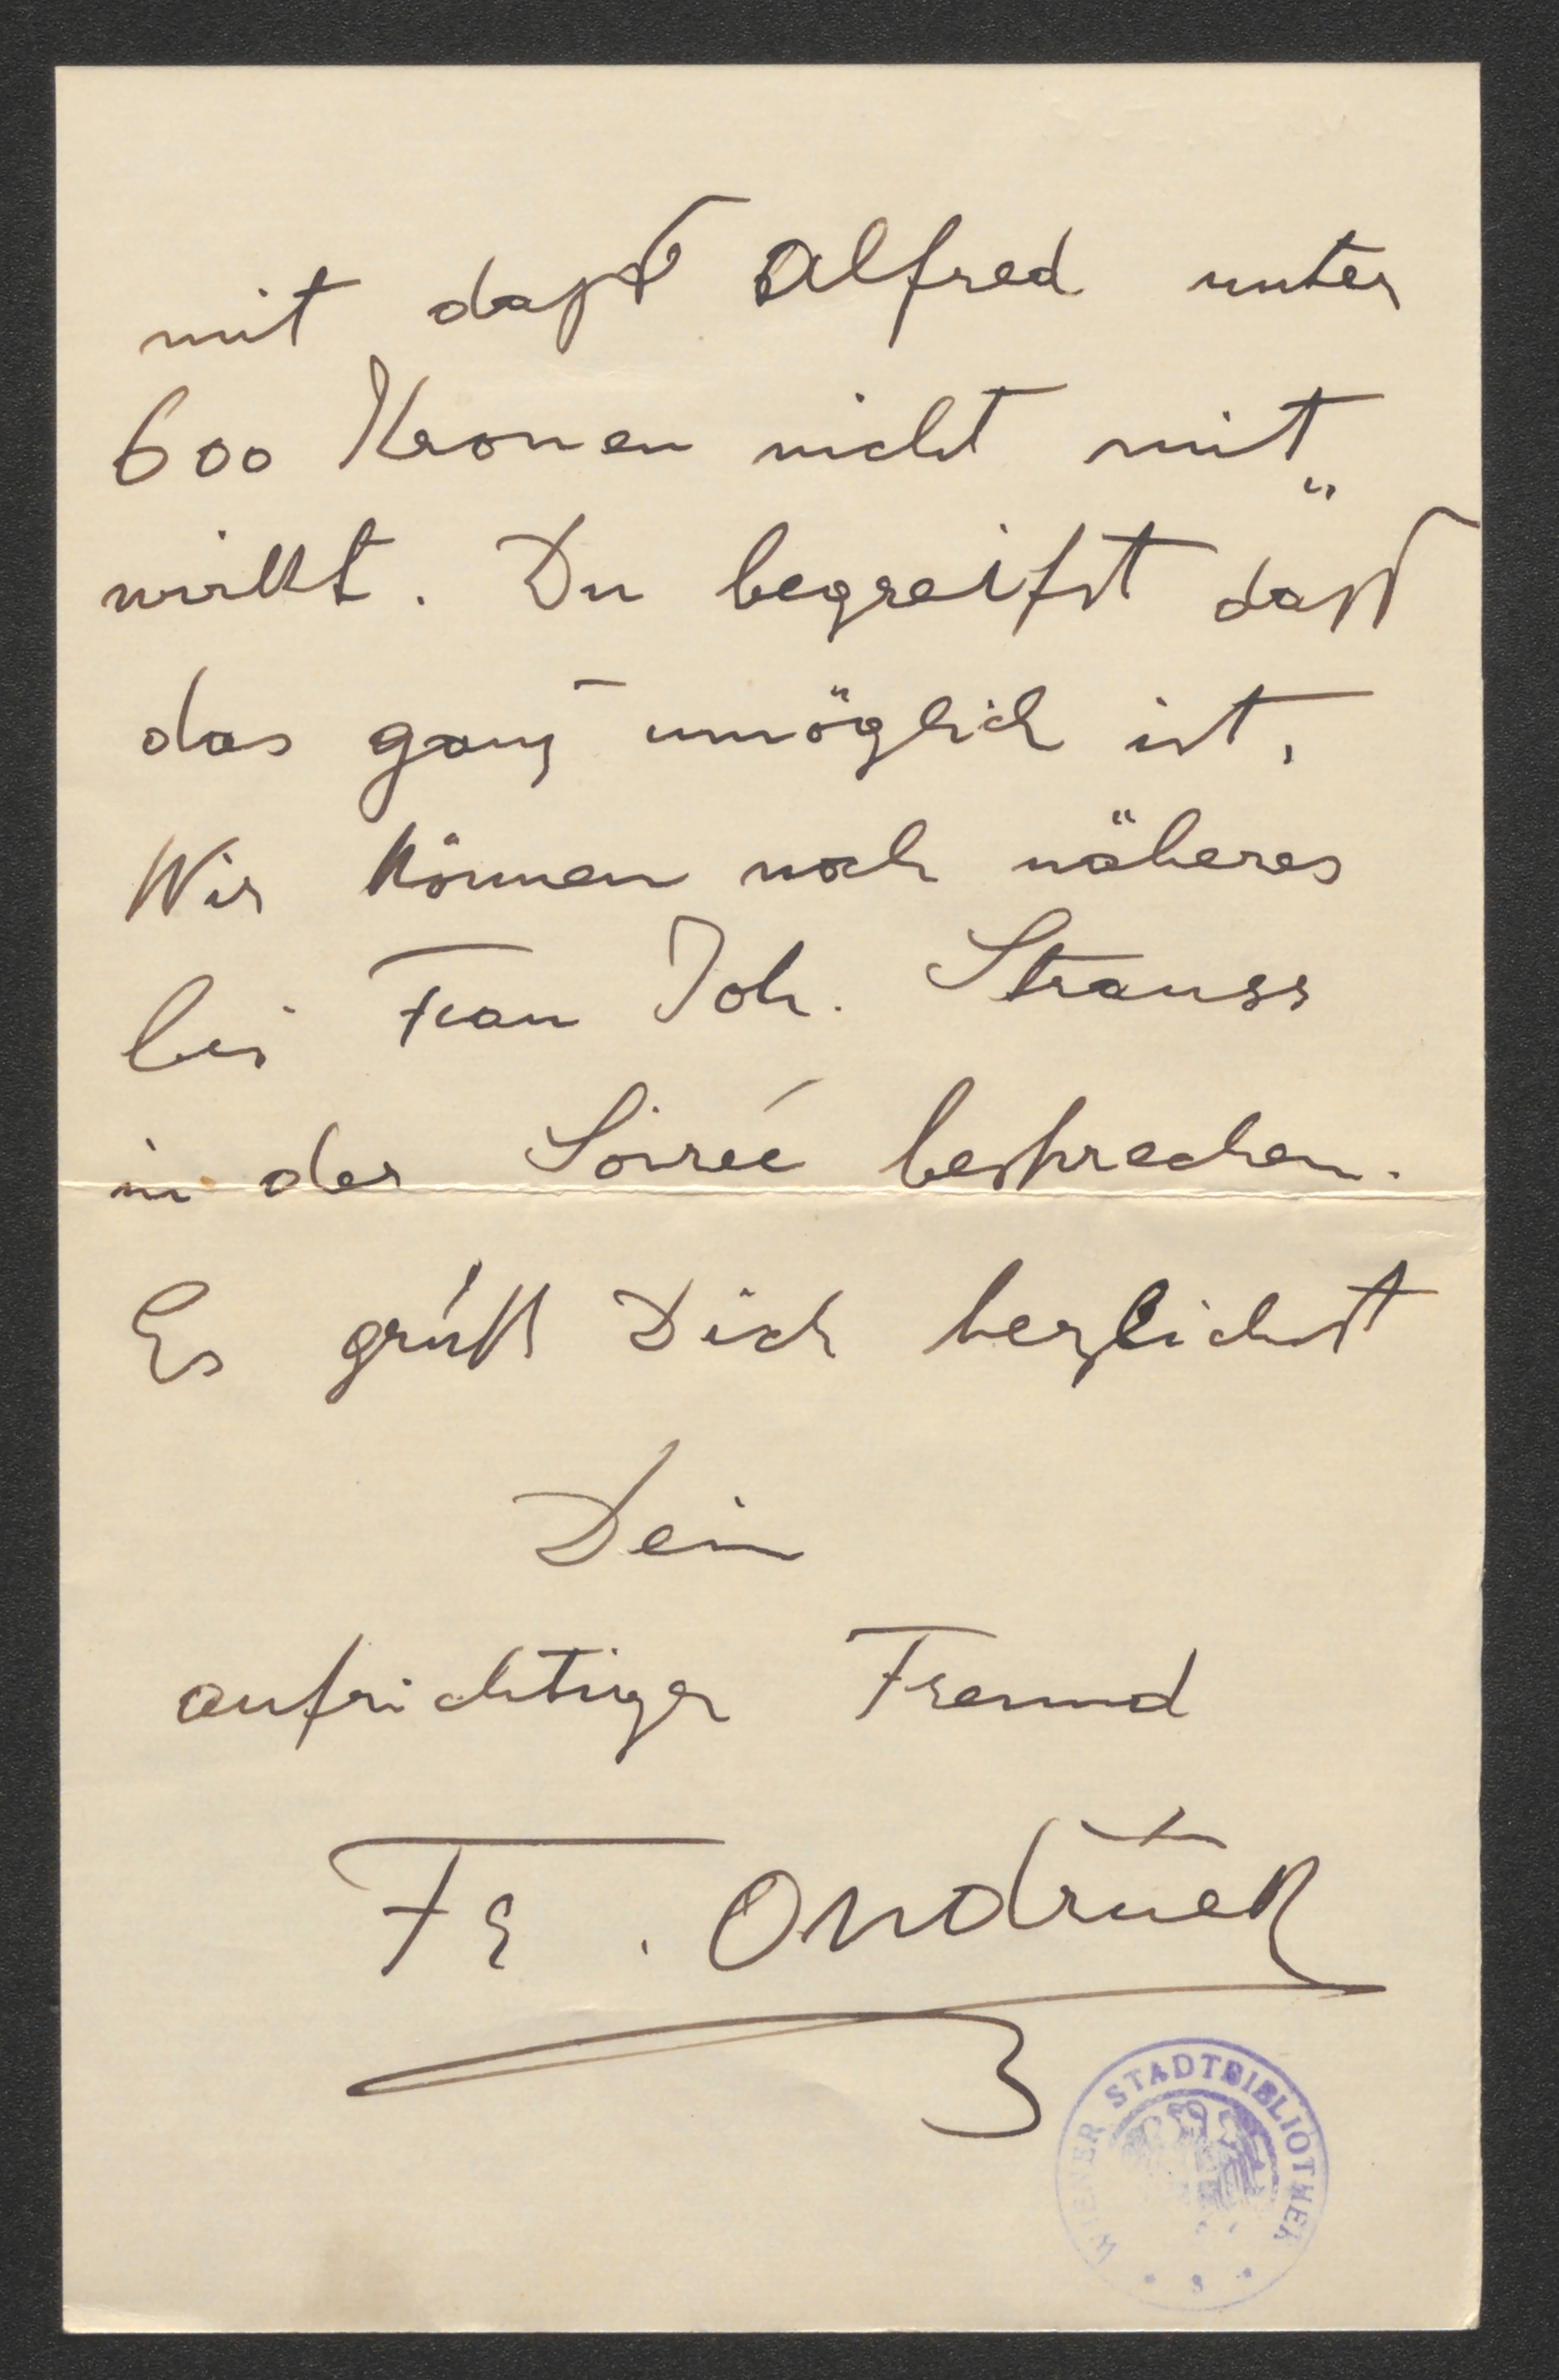 mit daß Alfred unter
600 Kronen nicht mit„
wirkt. Du begreifst daß
das ganz unmöglich ist.
Wir können noch näheres
bei Frau Joh. Strauss
in der Soireé besprechen.
Es grüßt Dich herzlichst
Dein
aufrichtiger Freund
Fr. Ondřiček
WIENER STADTBIBLIOTHEK